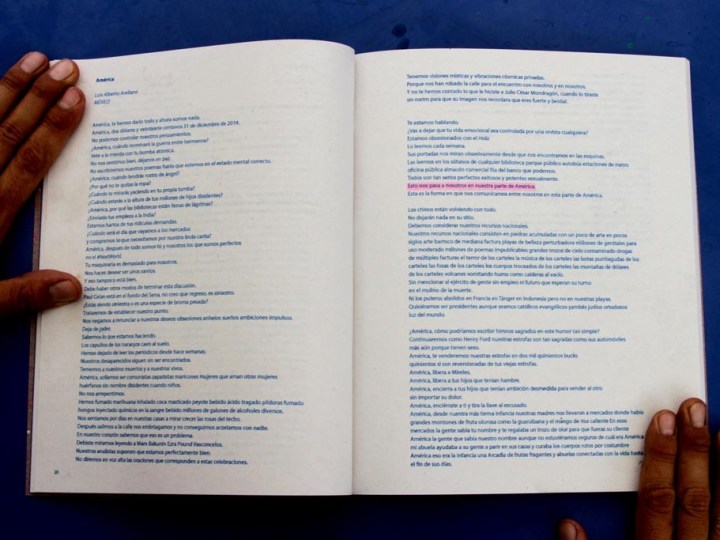 América
Luis Alberto Arellano
MÉXICO
América, te hemos dado todo y ahora somos nada.
América, dos dólares y veintisiete centavos 31 de diciembre de 2014.
No podemos controlar nuestros pensamientos.
América, ¿cuándo terminará la guerra entre hermanos?
Vete a la mierda con tu bomba atómica.
No nos sentimos bien, déjanos en paz.
No escribiremos nuestros poemas hasta que estemos en el estado mental correcto.
América, ¿cuándo tendrás rostro de ángel?
¿Por qué no te quitas la ropa?
¿Cuándo te mirarás yaciendo en tu propia tumba?
¿Cuándo estarás a la altura de tus millones de hijos disidentes?
América, ¿por qué las bibliotecas están llenas de lágrimas?
¿Enviarás tus empleos a la India?
Estamos hartos de tus ridículas demandas.
¿Cuándo será el día que vayamos a los mercados
y compremos lo que necesitamos por nuestra linda carita?
América, después de todo somos tú y nosotros los que somos perfectos
no el
Tu maquinaria es demasiado para nosotros.
Nos haces desear ser unos santos.
Y eso tampoco está bien.
Debe haber otros modos de terminar esta discusión.
Paul Celan está en el fondo del Sena, no creo que regrese, es siniestro.
¿Estás siendo siniestra o es una especie de broma pesada?
Trataremos de establecer nuestro punto.
Nos negamos a renunciar a nuestros deseos obsesiones anhelos sueños ambiciones impulsos.
Deja de joder.
Sabemos lo que estamos haciendo.
Los capullos de los naranjos caen al suelo.
Hemos dejado de leer los periódicos desde hace semanas.
Nuestros desaparecidos siguen sin ser encontrados.
Tememos a nuestros muertos y a nuestros vivos.
América, solíamos ser comunistas zapatistas maricones mujeres que aman otras mujeres
huérfanos sin nombre disidentes cuando niños.
No nos arrepentimos.
Hemos fumado marihuana inhalado coca masticado peyote bebido ácido tragado píldoras fumado
hongos inyectado químicos en la sangre bebido millones de galones de alcoholes diversos.
Nos sentamos por días en nuestras casas a mirar crecer las rosas del techo.
Después salimos a la calle nos embriagamos y no conseguimos acostarnos con nadie.
En nuestro corazón sabemos que eso es un problema.
Debiste mirarnos leyendo a Marx Bakunin Ezra Pound Vasconcelos.
Nuestros analistas suponen que estamos perfectamente bien.
No diremos en voz alta las oraciones que corresponden a estas celebraciones.
Tenemos visiones místicas y vibraciones cósmicas privadas.
Porque nos han robado la calle para el encuentro con nosotros y en nosotros.
Y no te hemos contado lo que le hiciste a Julio César Mondragón, cuando lo tiraste
sin rostro para que su imagen nos recordara que eres fuerte y bestial.
Te estamos hablando.
¿Vas a dejar que tu vida emocional sea controlada por una revista cualquiera?
Estamos obsesionados con el Hola
Lo leemos cada semana.
Sus portadas nos miran obsesivamente desde que nos encontramos en las esquinas.
Las leemos en los sótanos de cualquier biblioteca parque público autobús estaciones de metro
oficina pública almacén comercial fila del banco que podemos.
Todos son tan serios perfectos exitosos y potentes sexualmente.
Esto nos pasa a nosotros en nuestra parte de América.
Esta es la forma en que nos comunicamos entre nosotros en esta parte de América.
Los chinos están volviendo con todo.
No dejarán nada en su sitio.
Debemos considerar nuestros recursos nacionales.
Nuestros recursos nacionales consisten en piedras acumuladas con un poco de arte en pocos
siglos arte barroco de mediana factura playas de belleza perturbadora millones de genitales para
uso moderado millones de poemas impublicables grandes trozos de cielo contaminado drogas
de múltiples facturas el terror de los carteles la música de los carteles las botas puntiagudas de los
carteles las fosas de los carteles los cuerpos troceados de los carteles las montañas de dólares
de los carteles volcanes vomitando humo como calderas al vacío.
Sin mencionar al ejército de gente sin empleo ni futuro que esperan su turno
en el molino de la muerte.
Ni los puteros abolidos en Francia en Tánger en Indonesia pero no en nuestras playas.
Quisiéramos ser presidentes aunque seamos católicos evangélicos también judíos ortodoxos
luz del mundo.
¿América, cómo podríamos escribir himnos sagrados en este humor tan simple?
Continuaremos como Henry Ford nuestras estrofas son tan sagradas como sus automóviles
más aún porque tienen sexo.
América, te venderemos nuestras estrofas en dos mil quinientos bucks
quinientos si son reversionadas de tus viejas estrofas.
América, libera a Mireles.
América, libera a tus hijos que tenían hambre.
América, encierra a tus hijos que tenían ambición desmedida para vender al otro
sin importar su dolor.
América, enciérrate a ti y tira la llave al excusado.
América, desde nuestra más tierna infancia nuestras madres nos llevaron a mercados donde había
grandes montones de fruta olorosa como la guanábana y el mango de Hoz caliente En esos
mercados la gente sabía tu nombre y te regalaba un trozo de olor para que fueras su cliente
América la gente que sabía nuestro nombre aunque no estuviéramos seguros de cuál era América
mi abuela ayudaba a su gente a parir en sus casas y curaba los cuerpos rotos por costumbre
América eso era la infancia una Arcadia de frutas fragantes y abuelas conectadas con la vida hasta
el fin de sus días.